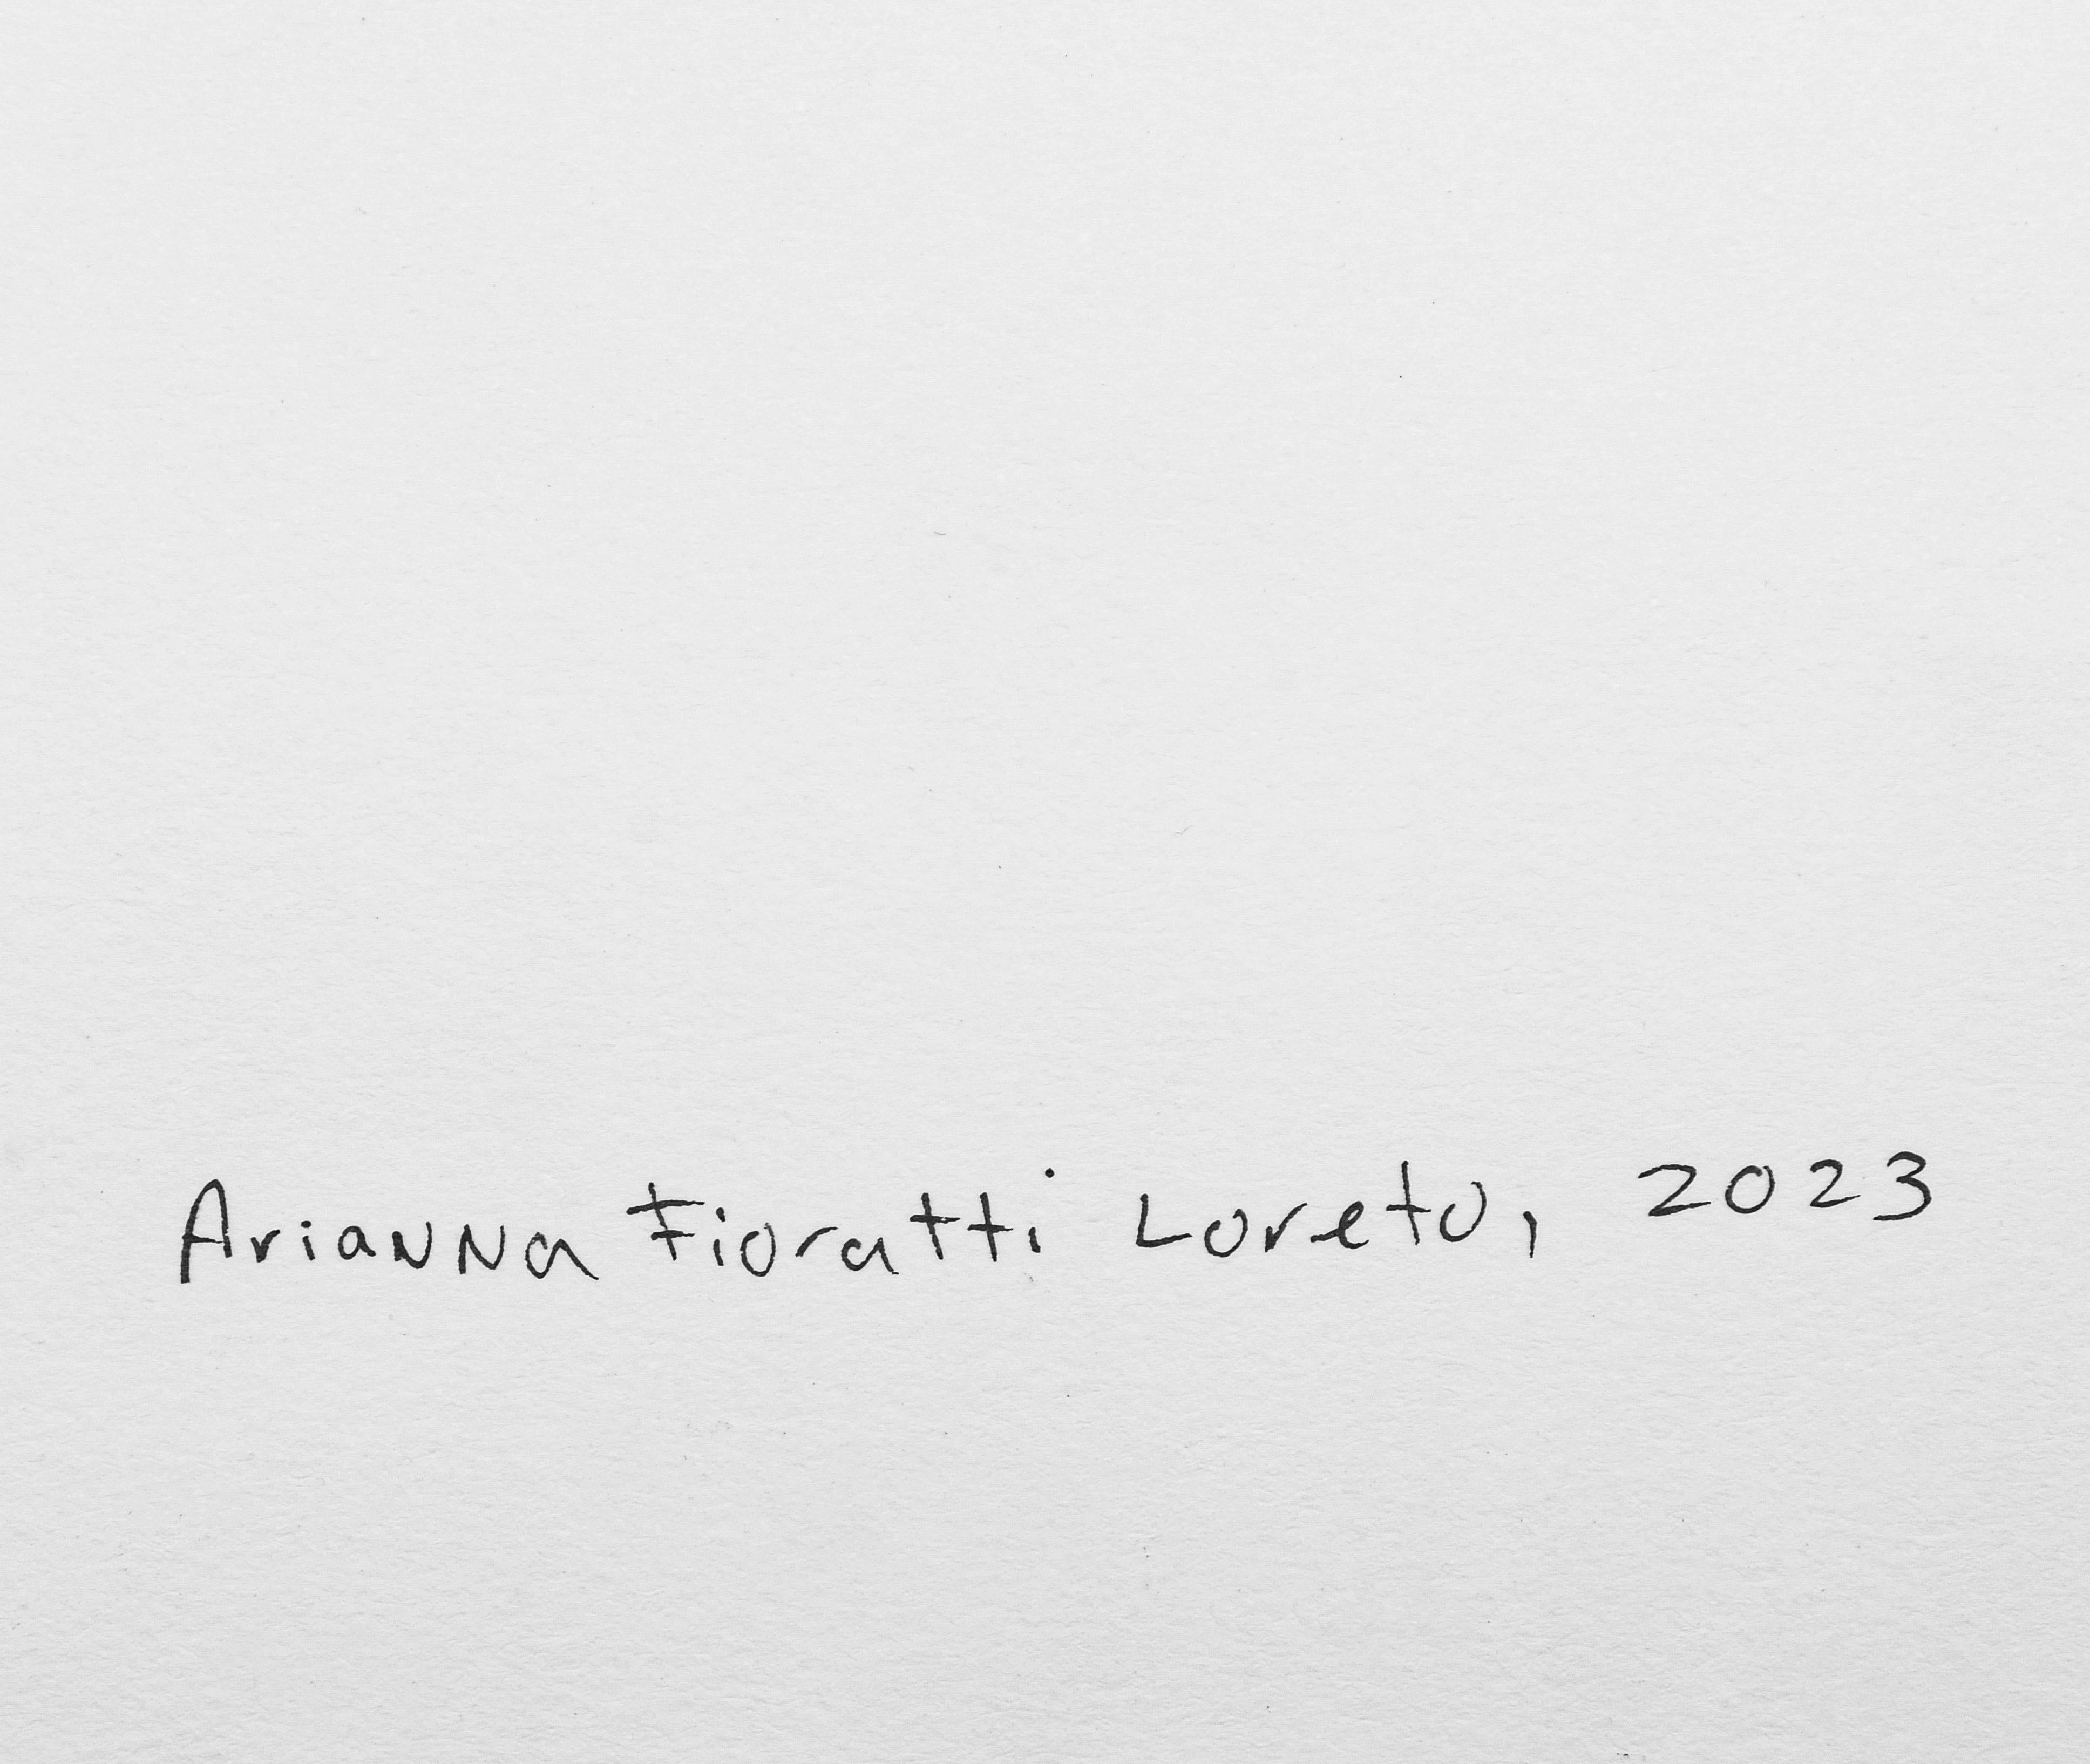 Arianna Fioratti Loreto, 2023